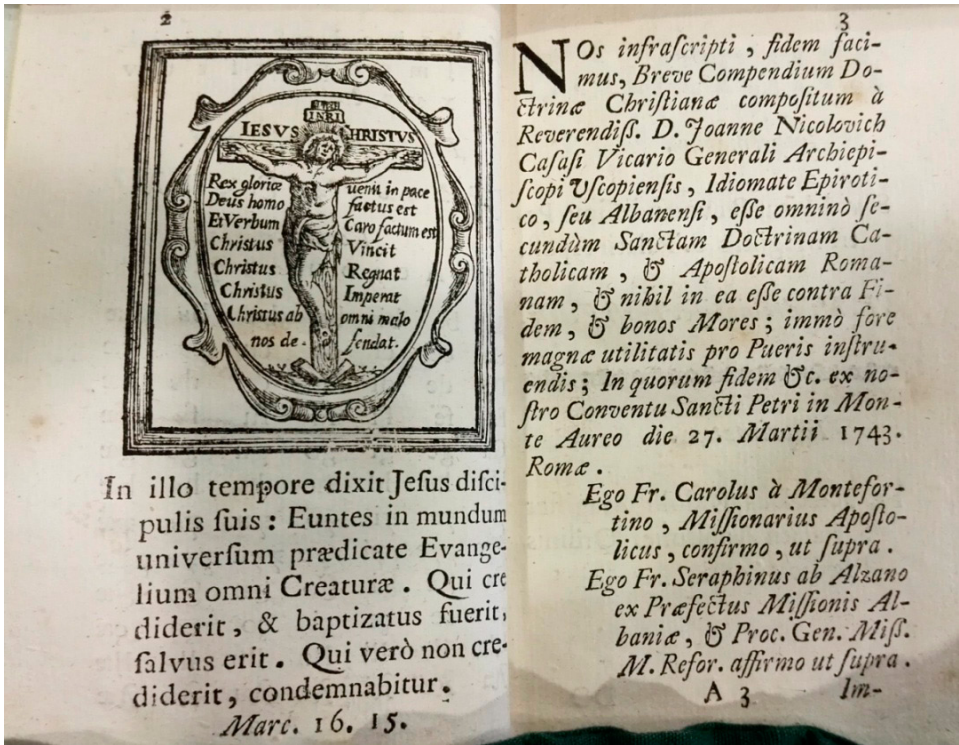 2
INRI
IESVS CHRISTVS
Rex gloriæ uenit in pace
Deus homo factus est
Et Verbum Caro factum est
Christus Vincit
Christus Regnat
Christus Imperat
Christus ab omni malo
nos de- fendat.
In illo tempore dixit Jeſus diſci-
pulis ſuis : Euntes in mundum
univerſum prædicate Evange-
lium omni Creaturæ . Qui cre
diderit , & baptizatus fuerit,
ſalvus erit . Qui verò non cre-
diderit , condemnabitur .
Marc. 16. 15.
3
NOs infraſcripti , fidem faci-
mus, Breve Compendium Do-
ctrinæ Chriſtianæ compoſitum à
Reverendiſſ. D. Joanne Nicolovich
Caſaſi Vicario Generali Archiepi-
ſcopi Vſcopienſis , Idiomate Epiroti-
co , ſeu Albanenſi , eſſe omninò ſe-
cundùm Sanctam Doctrinam Ca-
tholicam , & Apoſtolicam Roma-
nam , & nihil in ea eſſe contra Fi-
dem , & bonos Mores ; immò fore
magnæ utilitatis pro Pueris inſtru-
endis ; In quorum fidem &c. ex no-
ſtro Conventu Sancti Petri in Mon-
te Aureo die 27. Martii 1743.
Romæ .
Ego Fr. Carolus à Montefor-
tino , Miſſionarius Apoſto-
licus , confirmo , ut ſupra .
Ego Fr. Seraphinus ab Alzano
ex Præfectus Miſſionis Al-
baniæ , & Proc. Gen. Miſſ.
M. Refor. affirmo ut ſupra .
A 3 Im-